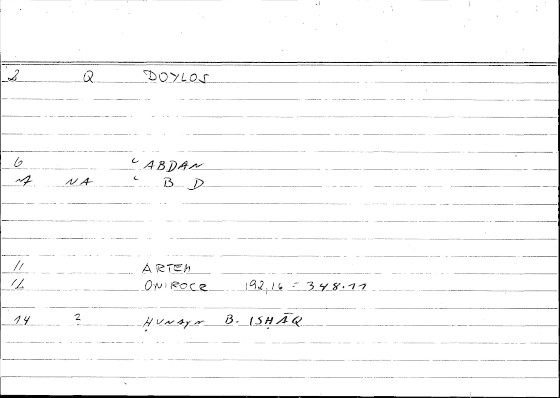 2 Q DOYLOS
6 ʿABDAN
7 NA ʿB D
11 ARTEM
12 ONIROCR 192,16 = 348.11
14 2 ḤUNAYN B. ISḤĀQ